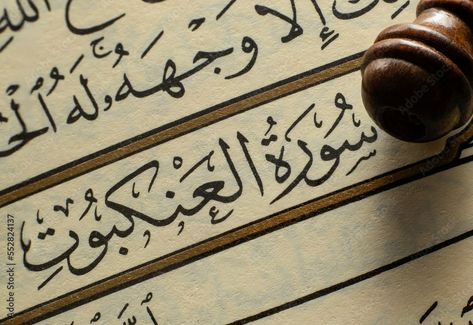 إِلَّا وَجْهَهُۥ ۚ لَهُ ٱلْحُ
سُورَةُ الْعَنْكَبُوتِ
Adobe Stock | #552824137